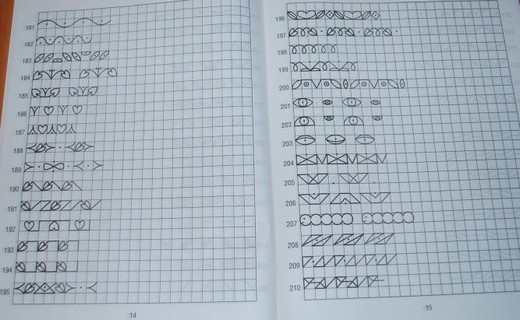 181
182
183
184
185
186
187
188
189
190
191
192
193
194
195
14
196
197
198
199
200
201
202
203
204
205
206
207
208
209
210
15